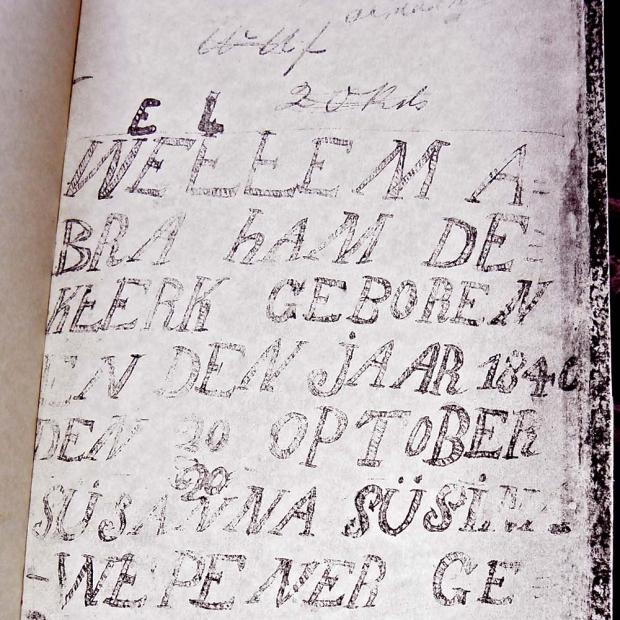 20 Rds
E L
WELLEM A=
BRA hAM DE=
KLERK GEBOREN
EN DEN JAAR 1840
DEN 20 OPTOBER
20
SÜSANNA
-WEPENER GE=